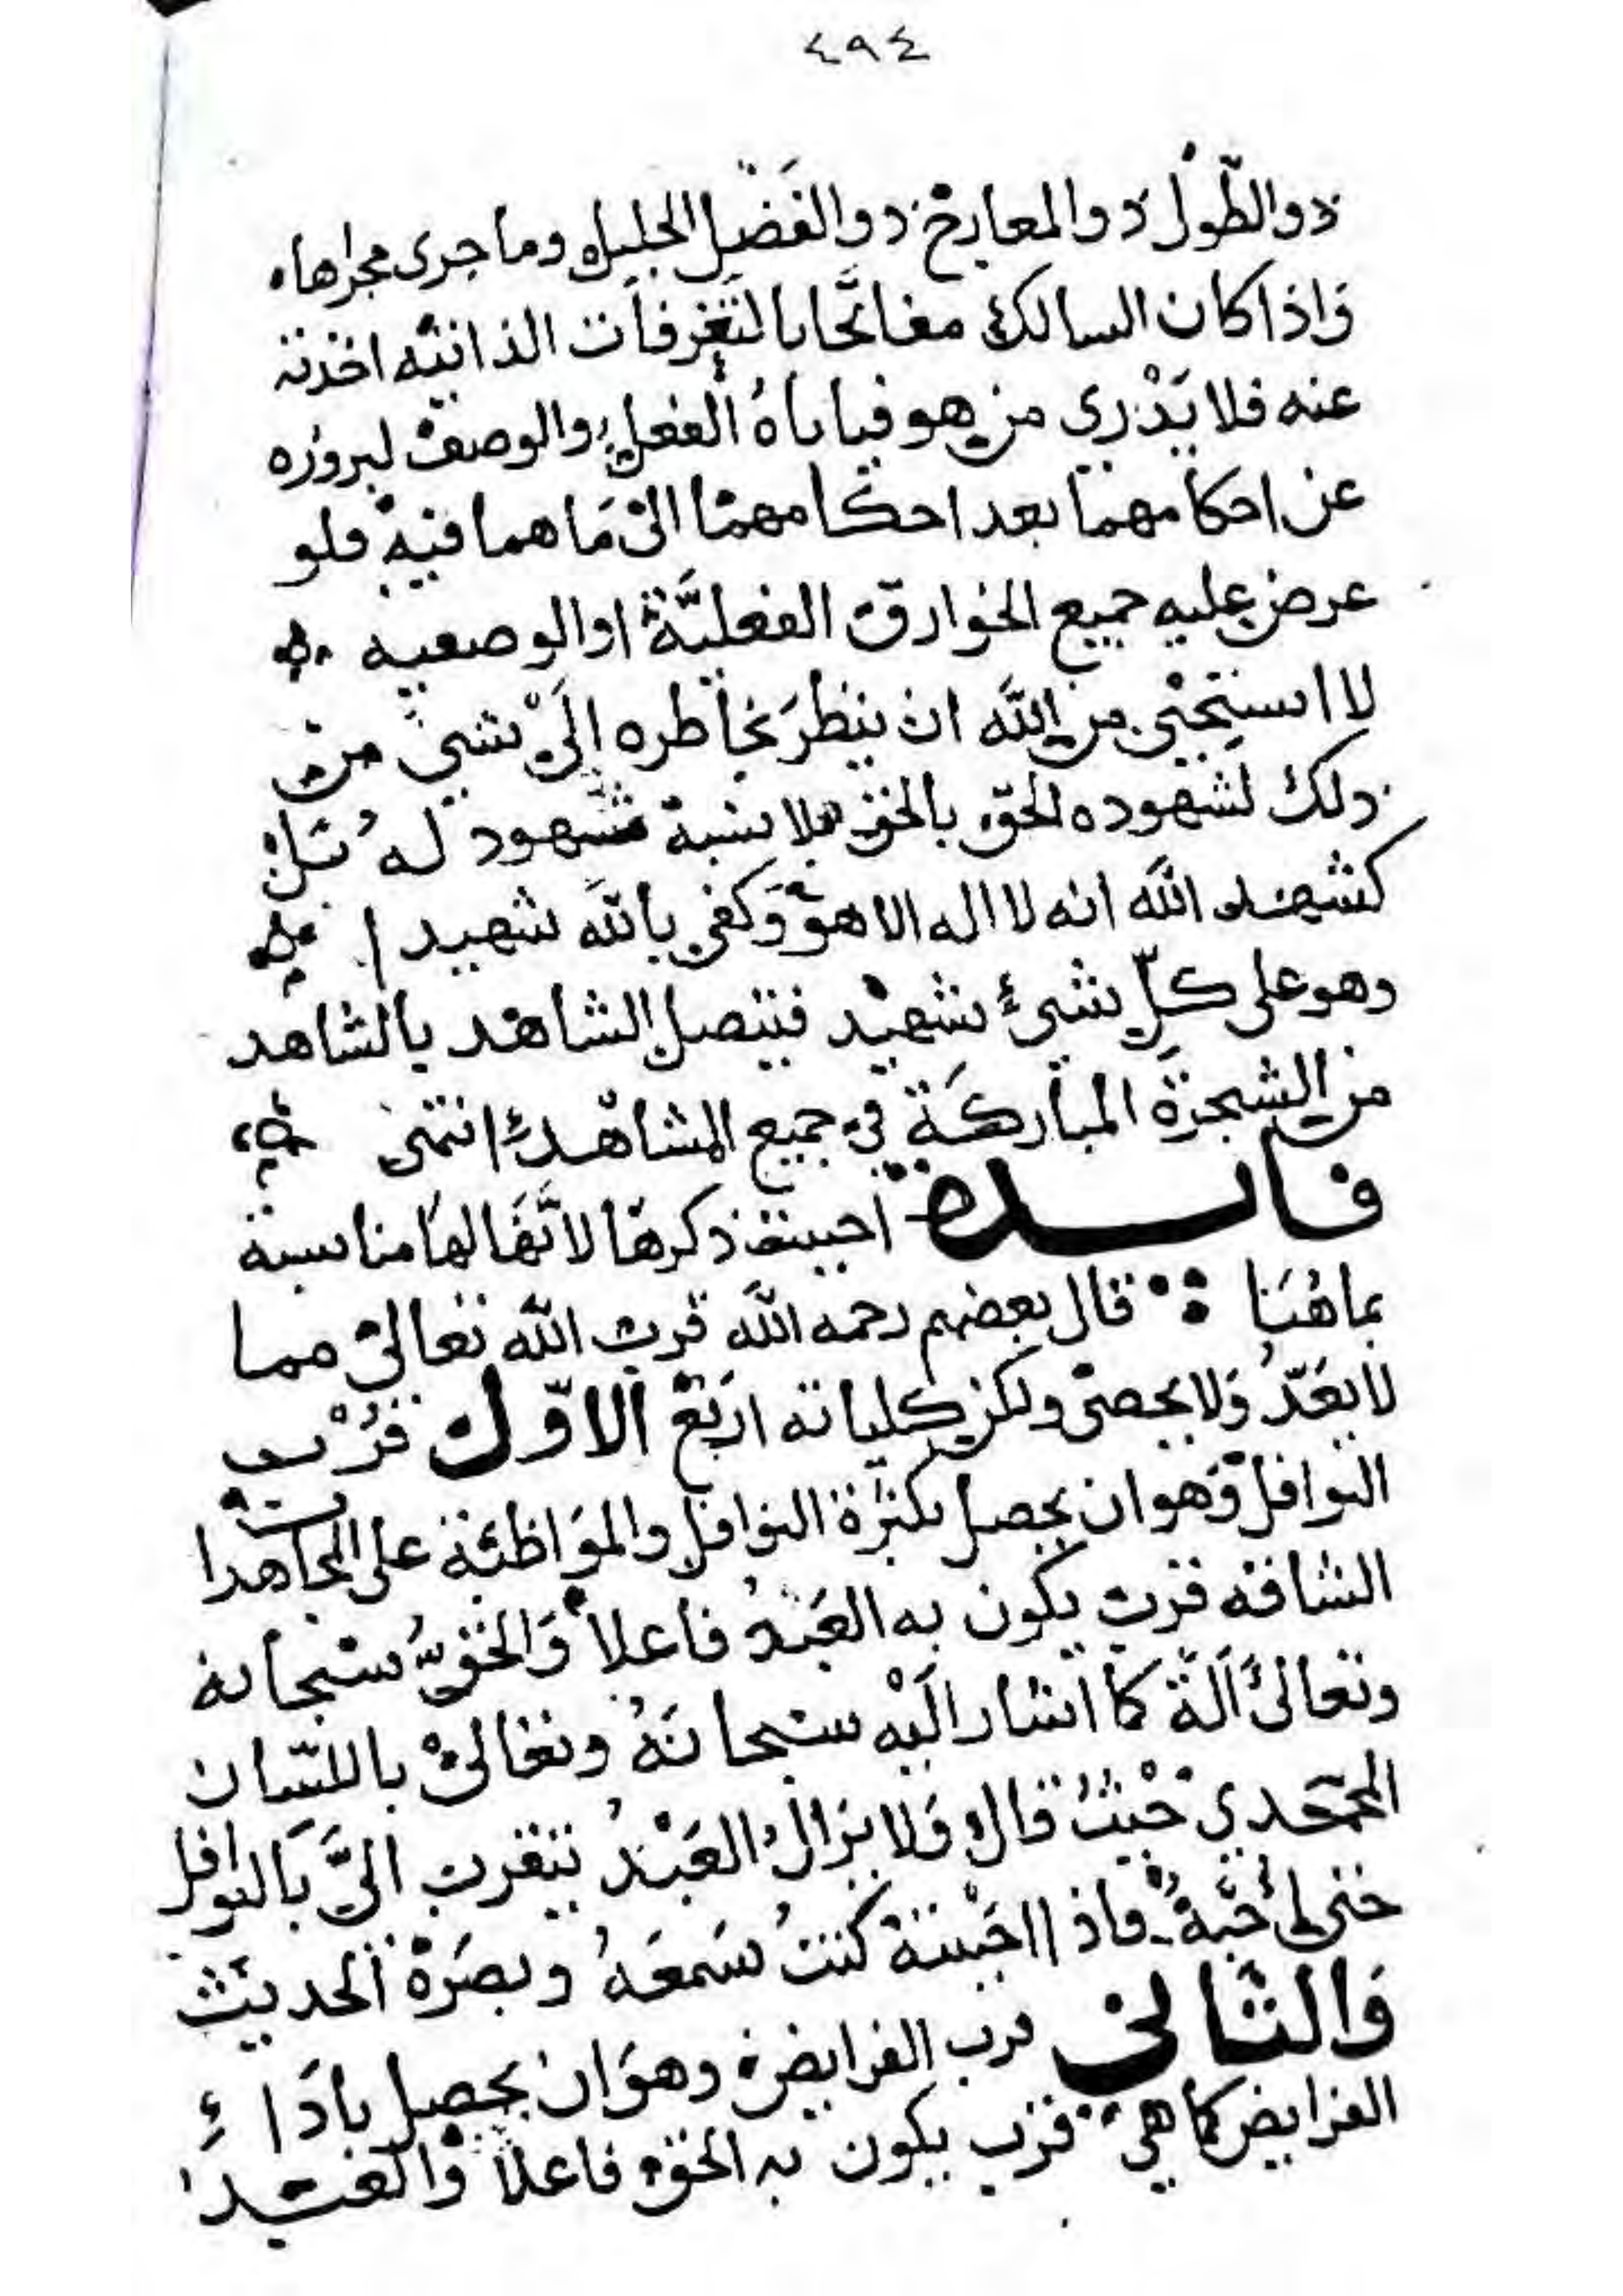 ٤٩٤
ذو الطَّولُ ذو المعارج ذو الفَضْلِ الجليل وما جرى مجراها
وَاذا كان السالك مفاتَحًا بالتَّعرفات الذاتيَّه اخذته
عنه فلا يَدْري من هو فياباهُ الفعل والوصف لبروزه
عن احكامهما بعد احكامهما الى مَا هما فيه فلو
عرض عليه جميع الخوارق الفعليَّة او الوصفيه
لا استحْيى من اللَّه ان ينظرَ بخاطره الَىْ شيئ من
ذلك لشهوده الحقّ بالحق بلا نسبة شهود لهُ بَلْ
كشهد اللَّه انه لا اله الا هو وَكفى بالله شهيدا
وهو على كلّ شئ شهيْد فيتصل الشاهد بالشاهد
من الشجرَة المباركَة في جميع المشاهد انتهى
فايدة احببت ذكرها لانَّها لها مناسبة
بماهُنَا قال بعضهم رحمه اللَّه قرب اللَّه تعالى مما
لا يعَدُّ وَلا يحصى ولكن كلياته ارَبع الاوّل قرُب
النوافل وَهو ان يحصل بكثرة النوافل والموَاظبة على المجاهدات
الشاقه قرب يكون به العَبْدُ فاعلاً وَالحقُّ سبحانه
وتعالىْ آلَة كما اشار اليْه سبحانَهُ وتعالىْ باللسان
المحمَّدي حيْثُ قال وَلا يزالُ العَبْدُ يتقرب الىَّ بَالنوافل
حتى أُحبَّهُ فاذا احَببتهْ كنتُ سَمعَهُ وبصَرَهْ الحديث
وَالثَّاني قرب الفرايض وهوَ ان يحصل بادَاءِ
الفرايض كما هي قرب يكون به الحق فاعلاً وْالعبد